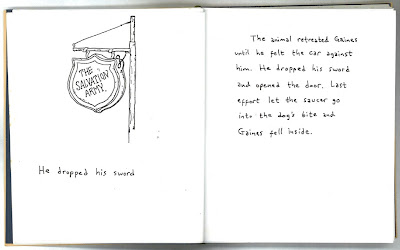 THE
SALVATION
ARMY.
He dropped his sword
The animal retreated Gaines
until he felt the car against
him. He dropped his sword
and opened the door. Last
effort let the saucer go
into the dog's bite and
Gaines fell inside.